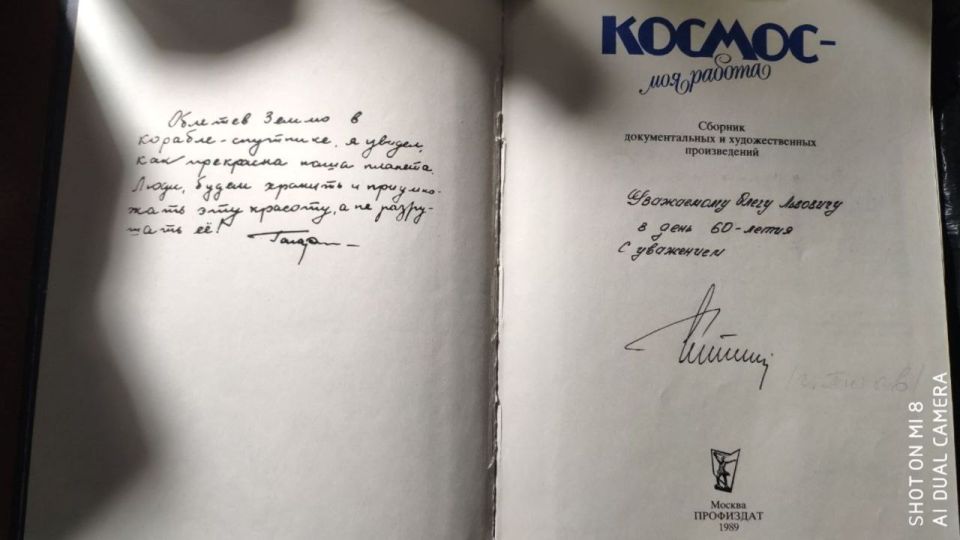 Облетев Землю в
корабле-спутнике, я увидел,
как прекрасна наша планета.
Люди, будем хранить и приумно-
жать эту красоту, а не разру-
шать её!
КОСМОС-
моя работа
Сборник
документальных и художественных
произведений
Уважаемому Олегу Львовичу
в день 60-летия
С уважением
Москва
ПРОФИЗДАТ
1989
SHOT ON MI 8
AI DUAL CAMERA